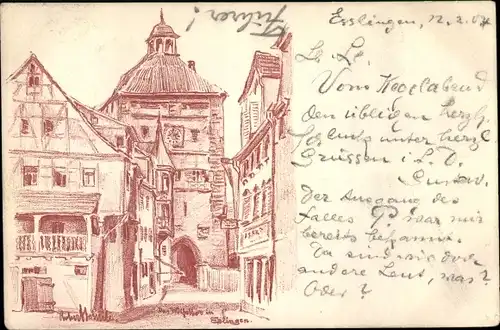 Führer!
Esslingen, 12.2.04
L. L.
Vom Kegelabend
den üblichen herzl.
unter herzl.
Grüssen i. L. D.
Gustav.
Der Ausgang des
Falles P war mir
bereits bekannt.
Da sind sie over
andere Leut, was?
Oder?
Das Wolfsthor in
Esslingen.